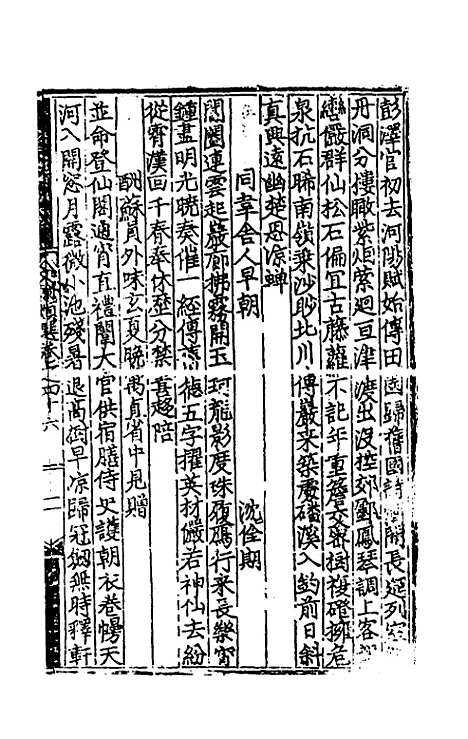 彭澤官初去河陽賦始傳田園歸舊國詩開長筵列室
丹洞分樓瞰紫炬縈迴亘津渡出沒控郊鄽鳳琴調上客
巒儼群仙松石偏宜古藤蘿不記年重簷交密樹複磴擁危
泉抗石晞南嶺乘沙眇北川傅巖来築處磻溪入釣前日斜
真興遠幽楚思潺蟬
同韋舍人早朝 沈佺期
閶闔連雲起巖廊拂霧開玉珂龍影度珠履鴈行来長樂宵
鐘盡明光曉奏催一經傳舊德五字擢英材儼若神仙去紛
從霄漢回千春奉休歷分禁喜趨陪
酬蘇員外味玄夏晚寓直省中見贈
並命登仙閣通宵直禮闈大官供宿膳侍史護朝衣卷幔天
河入開窓月露微小池殘暑退高樹早凉歸冠劔無時釋軒